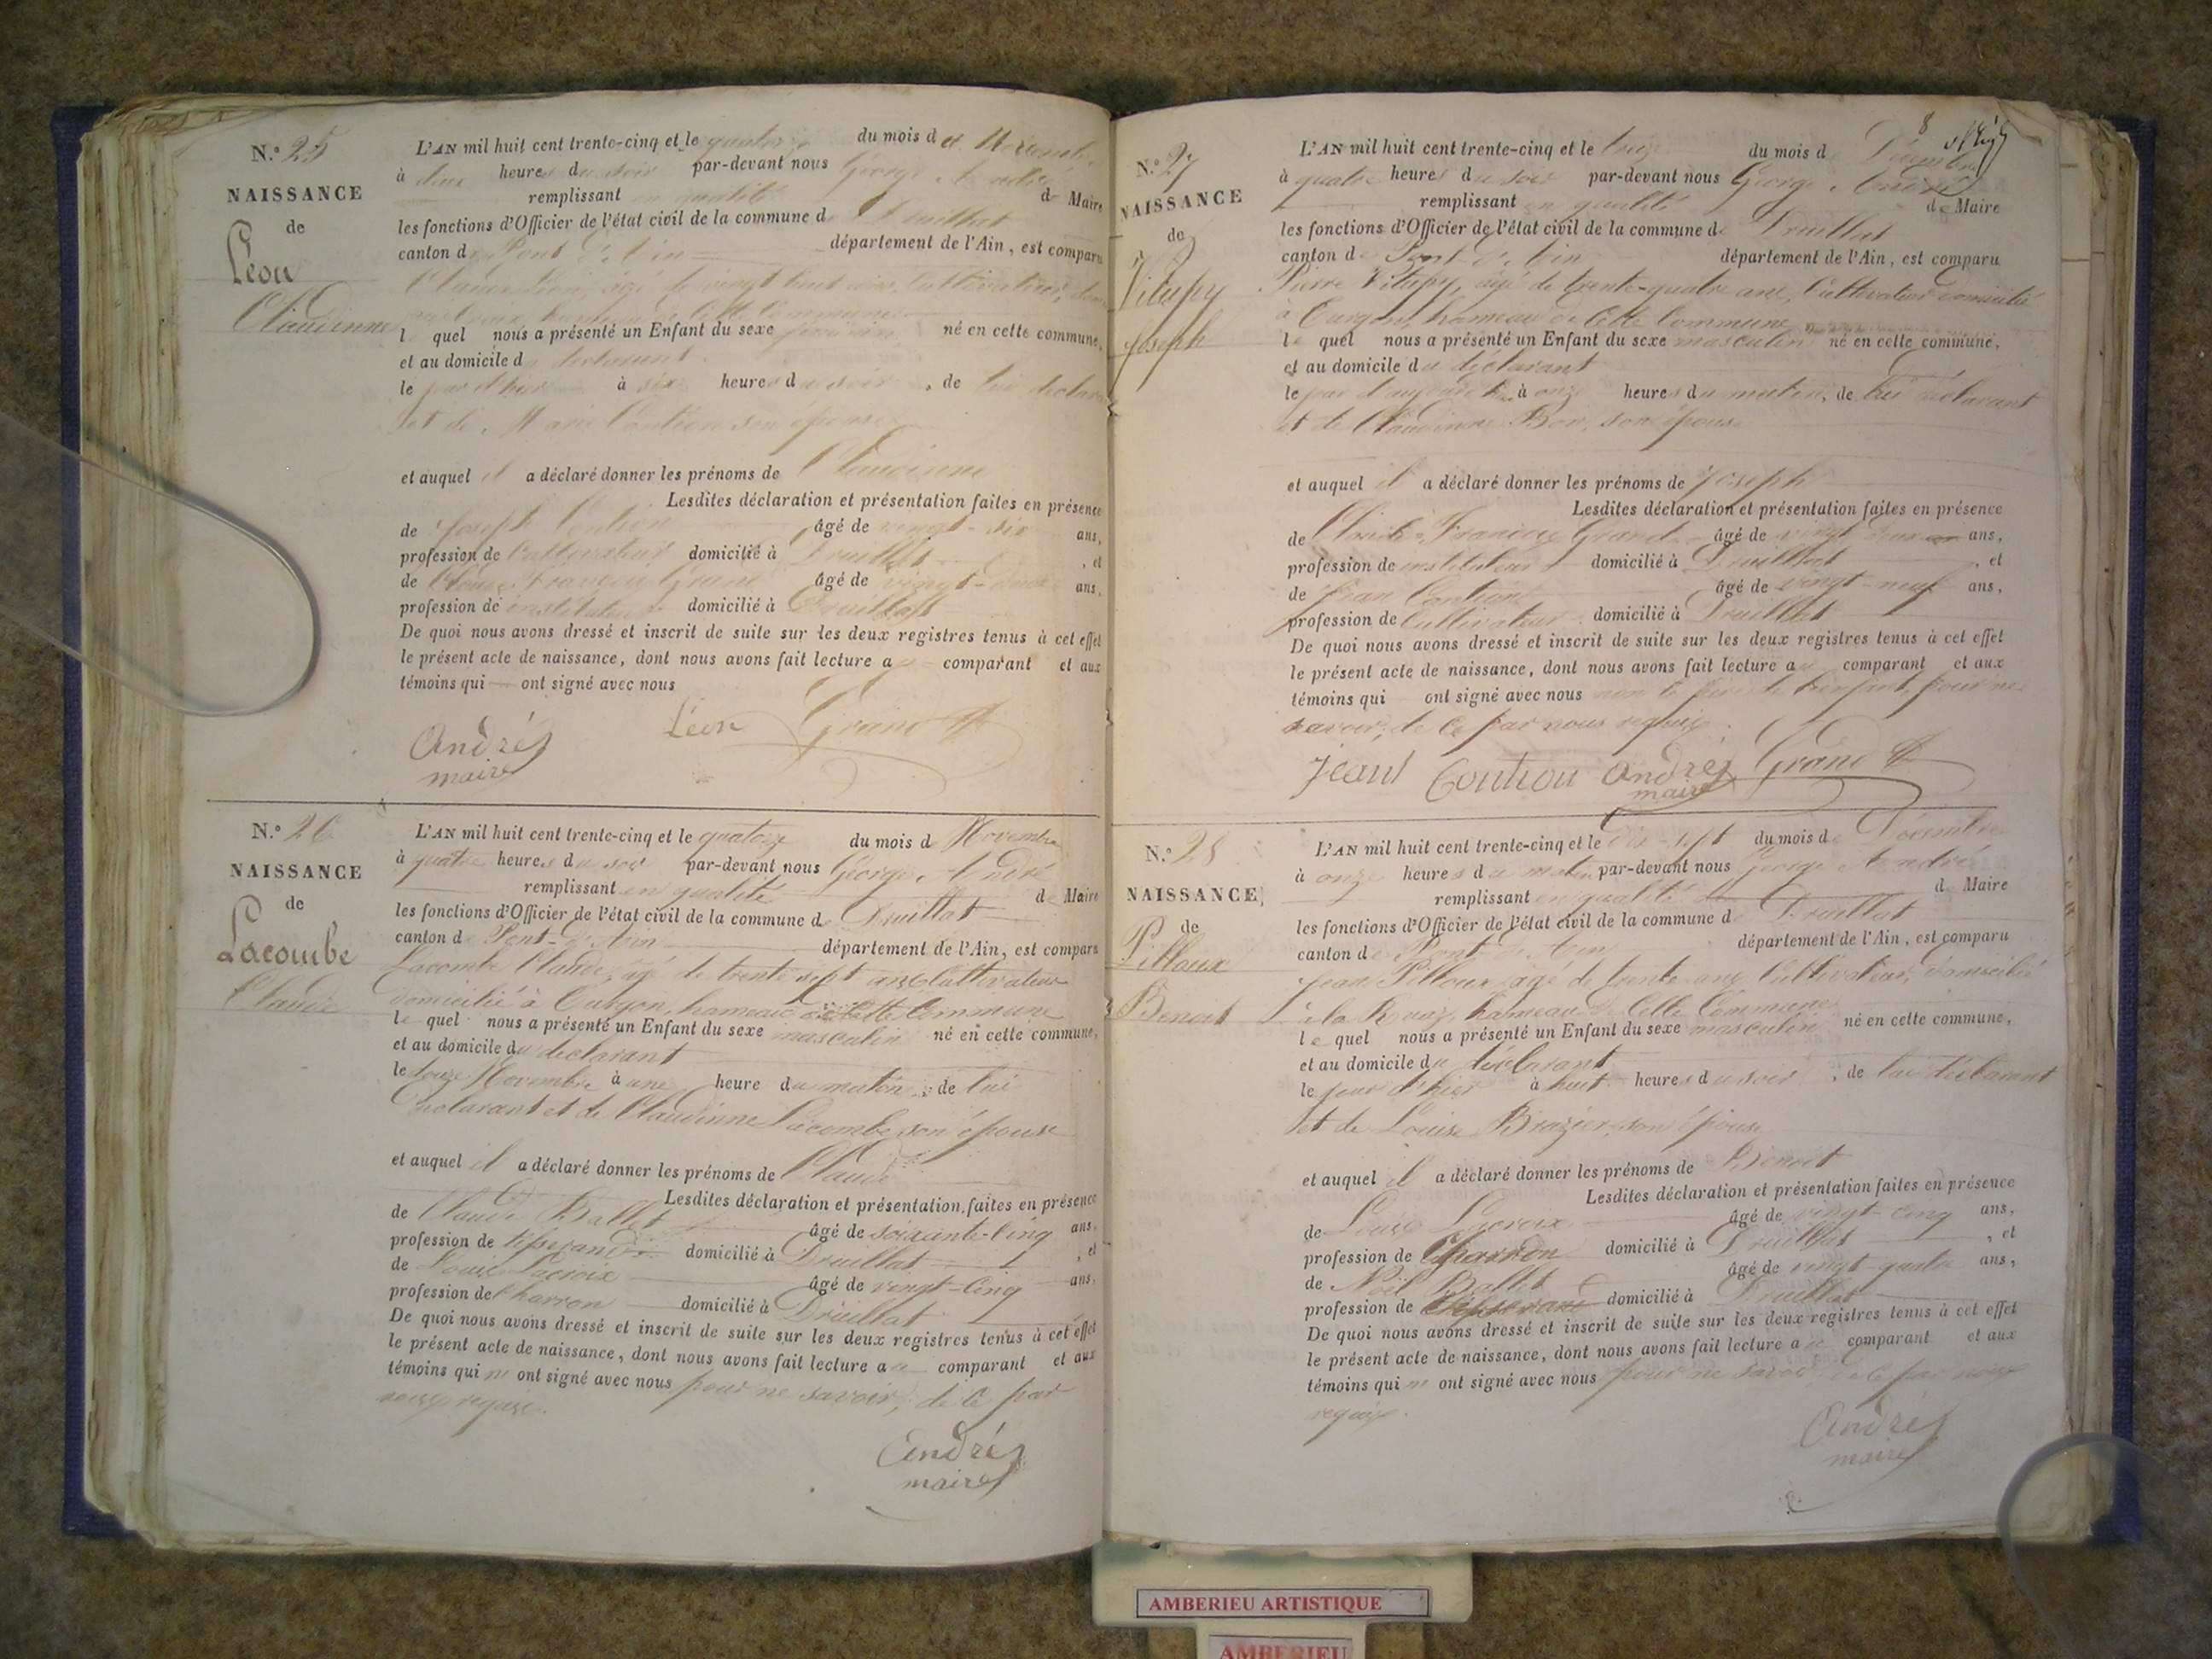 N.° 25
NAISSANCE
de
Léon
Claudinne
L'AN mil huit cent trente-cinq et le quatorze du mois de Novembre
à deux heures du soir par-devant nous George André
remplissant en qualité de Maire
les fonctions d'Officier de l'état civil de la commune de Druillat
canton de Pont d'Ain département de l'Ain, est comparu
Claude Léon, âgé de vingt huit ans, Cultivateur,
hameau de cette Commune
l quel nous a présenté un Enfant du sexe féminin né en cette commune,
et au domicile d déclarant
le jour d'hier à six heures du soir, de lui déclarant
et de Marie Contion son épouse
et auquel il a déclaré donner les prénoms de Claudinne
Lesdites déclaration et présentation faites en présence
de Joseph Contion âgé de vingt-six ans,
profession de Cultivateur domicilié à Druillat, et
de Grand âgé de vingt-deux ans,
profession de instituteur domicilié à Druillat
De quoi nous avons dressé et inscrit de suite sur les deux registres tenus à cet effet
le présent acte de naissance, dont nous avons fait lecture a comparant et aux
témoins qui ont signé avec nous
André Léon Grand
maire
N.° 26
NAISSANCE
de
Lacombe
Claude
L'AN mil huit cent trente-cinq et le quatorze du mois d Novembre
à quatre heures du soir par-devant nous George André
remplissant en qualité de Maire
les fonctions d'Officier de l'état civil de la commune de Druillat
canton de Pont-d'Ain département de l'Ain, est comparu
Lacombe Claude, âgé de trente sept ans Cultivateur
domicilié à Turgon, hameau de cette Commune
le quel nous a présenté un Enfant du sexe masculin né en cette commune,
et au domicile du déclarant
le douze Novembre à une heure du matin, de lui
déclarant et de Claudinne Lacombe son épouse
et auquel il a déclaré donner les prénoms de Claude
Lesdites déclaration et présentation faites en présence
de Claude Ballet âgé de soixante-cinq ans,
profession de tisserand domicilié à Druillat, et
de Louis Lacroix âgé de vingt-cinq ans,
profession de Charron domicilié à Druillat
De quoi nous avons dressé et inscrit de suite sur les deux registres tenus à cet effet
le présent acte de naissance, dont nous avons fait lecture au comparant et aux
témoins qui n' ont signé avec nous pour ne savoir, de ce par
nous requis.
André
maire
8
N.° 27
NAISSANCE
de
Vitupy
Joseph
L'AN mil huit cent trente-cinq et le treize du mois de Décembre
à quatre heures du soir par-devant nous George André
remplissant en qualité de Maire
les fonctions d'Officier de l'état civil de la commune de Druillat
canton de Pont d'Ain département de l'Ain, est comparu
Pierre Vitupy, âgé de trente-quatre ans, Cultivateur domicilié
à Turgon, hameau de Cette Commune
le quel nous a présenté un Enfant du sexe masculin né en cette commune,
et au domicile du déclarant
le jour d'aujourd'hui à onze heures du matin, de lui déclarant
et de Claudinne Bon, son épouse
et auquel il a déclaré donner les prénoms de Joseph
Lesdites déclaration et présentation faites en présence
de Grand âgé de vingt deux ans,
profession de instituteur domicilié à Druillat, et
de Jean Contion âgé de vingt-neuf ans,
profession de Cultivateur domicilié à Druillat
De quoi nous avons dressé et inscrit de suite sur les deux registres tenus à cet effet
le présent acte de naissance, dont nous avons fait lecture au comparant et aux
témoins qui ont signé avec nous non le père de l'enfant, pour ne
savoir, de ce par nous requis
Jean Contion André Grand
maire
N.° 28
NAISSANCE
de
Pilloux
Benoit
L'AN mil huit cent trente-cinq et le dix-sept du mois de Décembre
à onze heures du matin par-devant nous George André
remplissant en qualité de Maire
les fonctions d'Officier de l'état civil de la commune de Druillat
canton de Pont d'Ain département de l'Ain, est comparu
Jean Pilloux âgé de trente ans, Cultivateur, domicilié
à la hameau de Cette Commune
le quel nous a présenté un Enfant du sexe masculin né en cette commune,
et au domicile du déclarant
le jour d'hier à huit heures du soir, de lui déclarant
et de Louise Brazier, son épouse
et auquel il a déclaré donner les prénoms de Benoit
Lesdites déclaration et présentation faites en présence
de Louis Lacroix âgé de vingt-cinq ans,
profession de Charron domicilié à Druillat, et
de Noël Ballet âgé de vingt-quatre ans,
profession de tisserand domicilié à Druillat
De quoi nous avons dressé et inscrit de suite sur les deux registres tenus à cet effet
le présent acte de naissance, dont nous avons fait lecture au comparant et aux
témoins qui n' ont signé avec nous pour ne savoir, de ce par nous
requis.
André
maire
AMBERIEU ARTISTIQUE
AMBERIEU